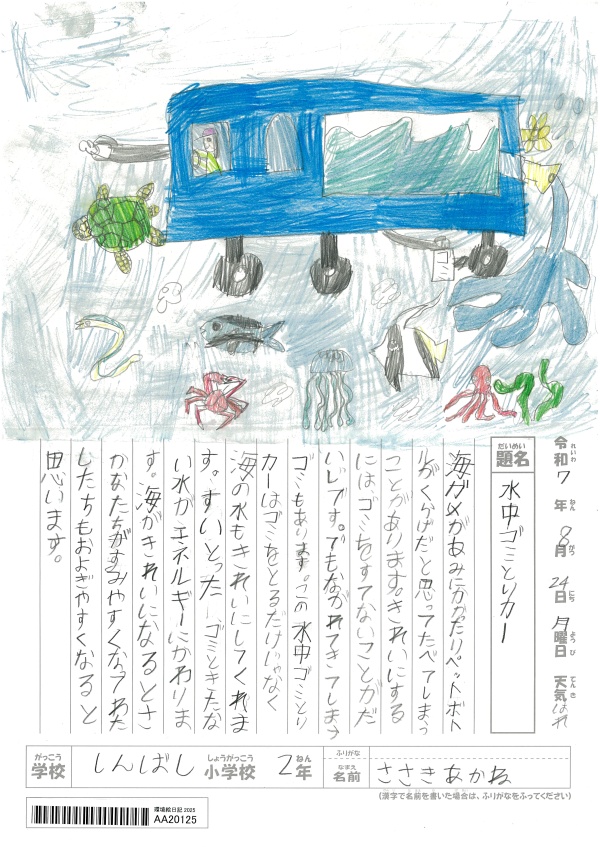 令和7年8月24日月曜日天気はれ
れいわ ねん がつ にち ようび てんき
だいめい
題名
水中ゴミとりカー
海ガメがあみにかかったりペットボト
ルがくらげだと思ってたべてしまう
ことがあります。きれいにする
にはゴミをすてないことがだ
いじです。でもながれてきてしまう
ゴミもあります。この水中ゴミとり
カーはゴミをとるだけじゃなく
海の水もきれいにしてくれま
す。すいとったゴミときたな
い水がエネルギーにかわりま
す。海がきれいになるとさ
かなたちがすみやすくなってわた
したちもおよぎやすくなると
思います。
がっこう しょうがっこう ねん
学校 しんばし 小学校 2年
ふりがな
なまえ
名前 ささきあかね
(漢字で名前を書いた場合は、ふりがなをふってください)
環境絵日記 2025
AA20125